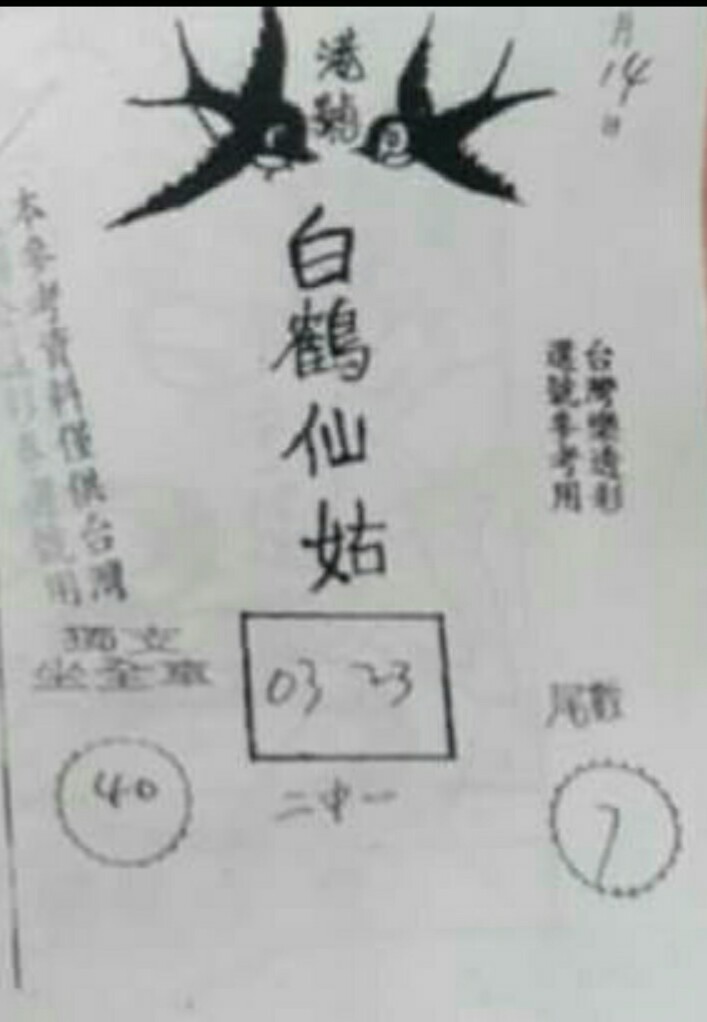 港號
月
14
日
白鶴仙姑
台灣樂透彩
選號參考用
本參考資料僅供台灣
選號用
獨立
坐全車
40
03 23
二中一
尾數
7